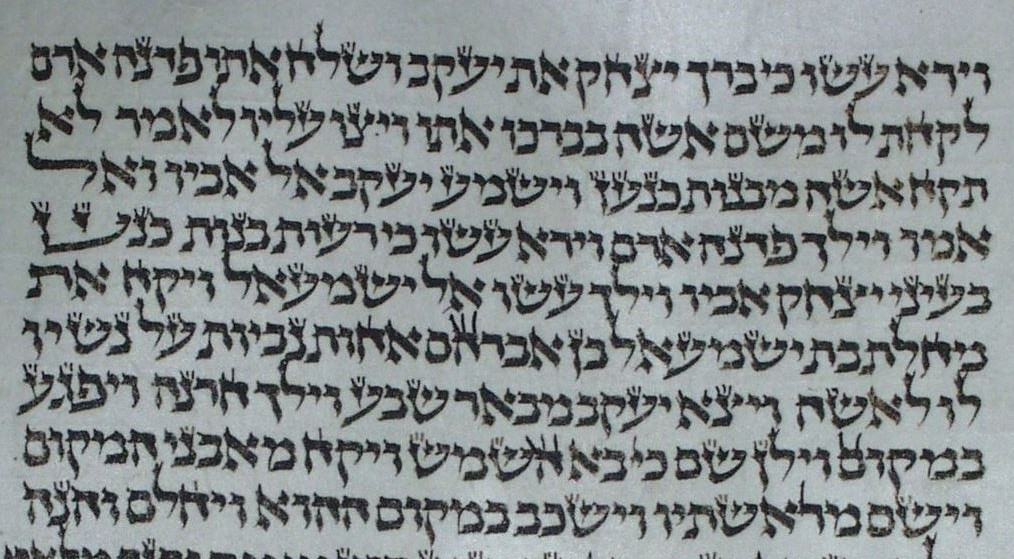 וירא עשו כי ברך יצחק את יעקב ושלח אתו פדנה ארם
לקחת לו משם אשה בברכו אתו ויצו עליו לאמר לא
תקח אשה מבנות כנען וישמע יעקב אל אביו ואל
אמו וילך פדנה ארם וירא עשו כי רעות בנות כנען
בעיני יצחק אביו וילך עשו אל ישמעאל ויקח את
מחלת בת ישמעאל בן אברהם אחות נביות על נשיו
לו לאשה ויצא יעקב מבאר שבע וילך חרנה ויפגע
במקום וילן שם כי בא השמש ויקח מאבני המקום
וישם מראשתיו וישכב במקום ההוא ויחלם והנה